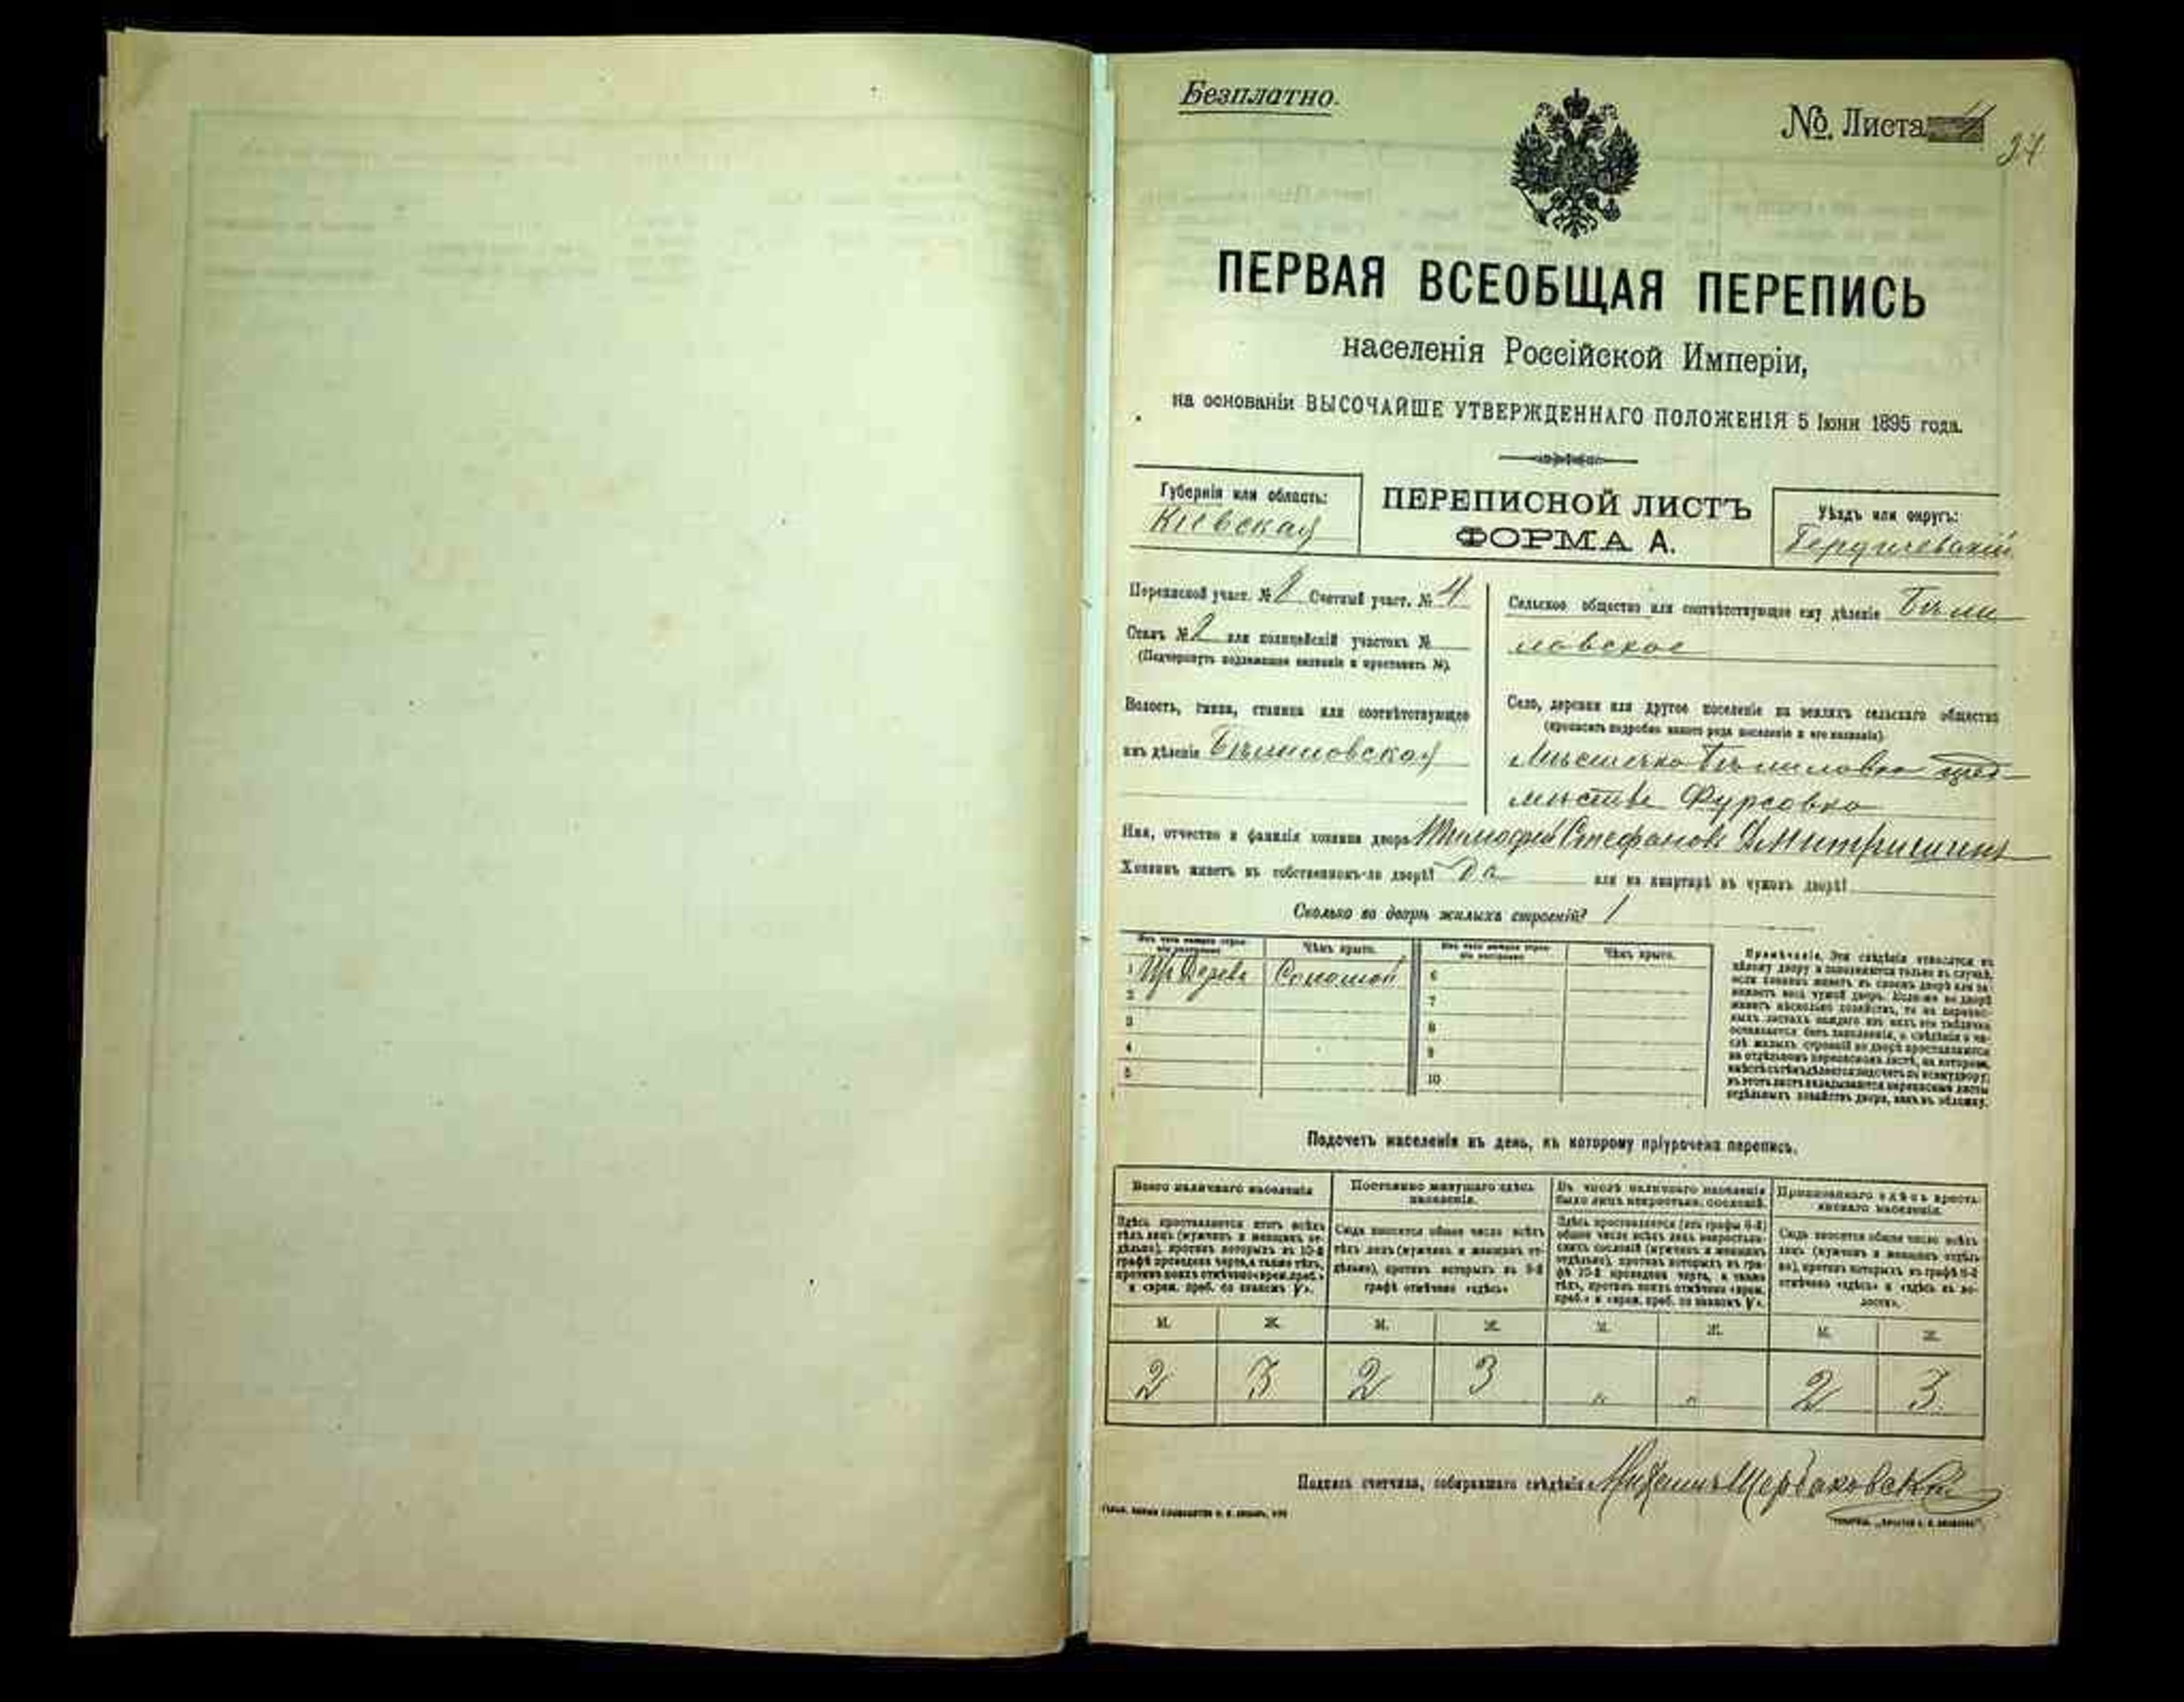 Безплатно.
№ Листа 4
24
ПЕРВАЯ ВСЕОБЩАЯ ПЕРЕПИСЬ
населенія Россійской Имперіи,
на основаніи ВЫСОЧАЙШЕ УТВЕРЖДЕННАГО ПОЛОЖЕНІЯ 5 Іюня 1895 года.
Губернія или область:
Кіевская
ПЕРЕПИСНОЙ ЛИСТЪ
ФОРМА А.
Уѣздъ или округъ:
Бердичевскій
Переписной участ. № 2 Счетный участ. № 4
Станъ № 2 или полицейскій участокъ №
(Подчеркнуть подлежащее названіе и проставить №).
Волость, гмина, станица или соотвѣтствующее
имъ дѣленіе Бѣлиловская
Сельское общество или соотвѣтствующее ему дѣленіе Бѣли
ловское
Село, деревня или другое поселеніе на земляхъ сельскаго общества
(прописать подробно какого рода поселеніе и его названіе).
Мѣстечко Бѣлиловка пред
мѣстье Фурсовка
Имя, отчество и фамилія хозяина двора Тимофей Стефановъ Дмитришинъ
Хозяинъ живетъ въ собственномъ-ли дворѣ? Да или на квартирѣ въ чужомъ дворѣ?
Сколько во дворѣ жилыхъ строеній? 1
Изъ чего жилыя строенія построены
Чѣмъ крыто.
Изъ чего жилыя строенія построены
Чѣмъ крыто.
1 Изъ Дерева Соломой 6
2 7
3 8
4 9
5 10
Примѣчаніе. Эти свѣдѣнія относятся къ
цѣлому двору и заполняются только въ случаѣ,
если хозяинъ живетъ въ своемъ дворѣ или за-
нимаетъ весь чужой дворъ. Если-же во дворѣ
живетъ нѣсколько хозяйствъ, то на перепис-
ныхъ листахъ каждаго изъ нихъ эта табличка
оставляется безъ заполненія, а свѣдѣнія о чи-
слѣ жилыхъ строеній во дворѣ проставляются
на отдѣльномъ переписномъ листѣ, на которомъ
вмѣстѣ съ тѣмъ дѣлается подсчетъ по всему двору;
въ этотъ листъ вкладываются переписные листы
отдѣльныхъ хозяйствъ двора, какъ въ обложку.
Подсчетъ населенія въ день, къ которому пріурочена перепись.
Всего наличнаго населенія
Здѣсь проставляется итогъ всѣхъ
тѣхъ лицъ (мужчинъ и женщинъ от-
дѣльно), противъ которыхъ въ 10-й
графѣ проведена черта, а также тѣхъ,
противъ коихъ отмѣчено «врем. преб.»
и «врем. преб. со знакомъ V».
Постоянно живущаго здѣсь
населенія.
Сюда вносится общее число всѣхъ
тѣхъ лицъ (мужчинъ и женщинъ от-
дѣльно), противъ которыхъ въ 9-й
графѣ отмѣчено «здѣсь»
Въ числѣ наличнаго населенія
было лицъ некрестьян. сословій.
Здѣсь проставляется (изъ графы 6-й)
общее число всѣхъ лицъ некрестьян-
скихъ сословій (мужчинъ и женщинъ
отдѣльно), противъ которыхъ въ гра-
фѣ 10-й проведена черта, а также
тѣхъ, противъ коихъ отмѣчено «врем.
преб.» и «врем. преб. со знакомъ V».
Приписаннаго здѣсь кресть-
янскаго населенія.
Сюда вносится общее число всѣхъ
лицъ (мужчинъ и женщинъ отдѣль-
но), противъ которыхъ въ графѣ 8-й
отмѣчено «здѣсь» и «здѣсь въ во-
лости».
М. Ж. М. Ж. М. Ж. М. Ж.
2 3 2 3 " " 2 3
Подпись счетчика, собиравшаго свѣдѣнія Щербаковскій